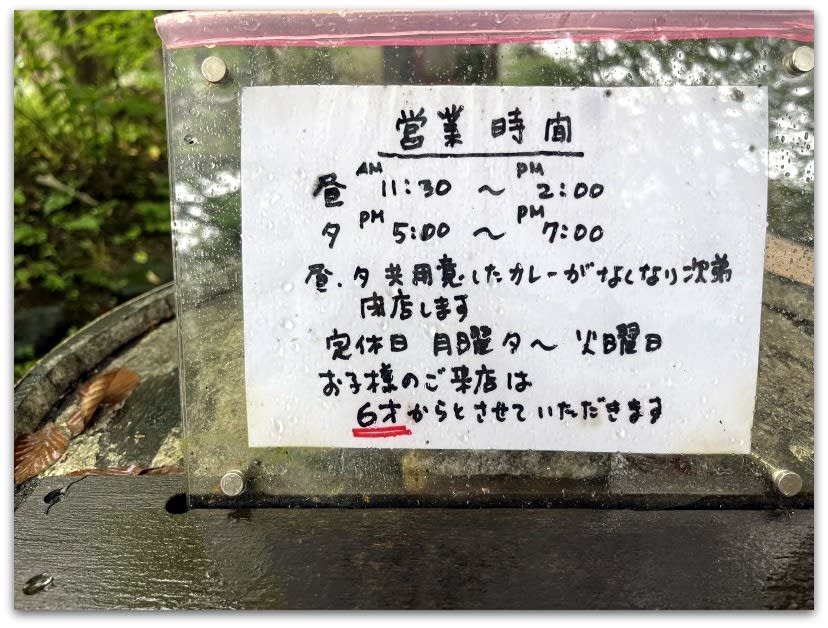 営業時間
昼 AM 11:30 〜 PM 2:00
夕 PM 5:00 〜 PM 7:00
昼.夕共用意したカレーがなくなり次第
閉店します
定休日 月曜夕〜火曜日
お子様のご来店は
6才からとさせていただきます